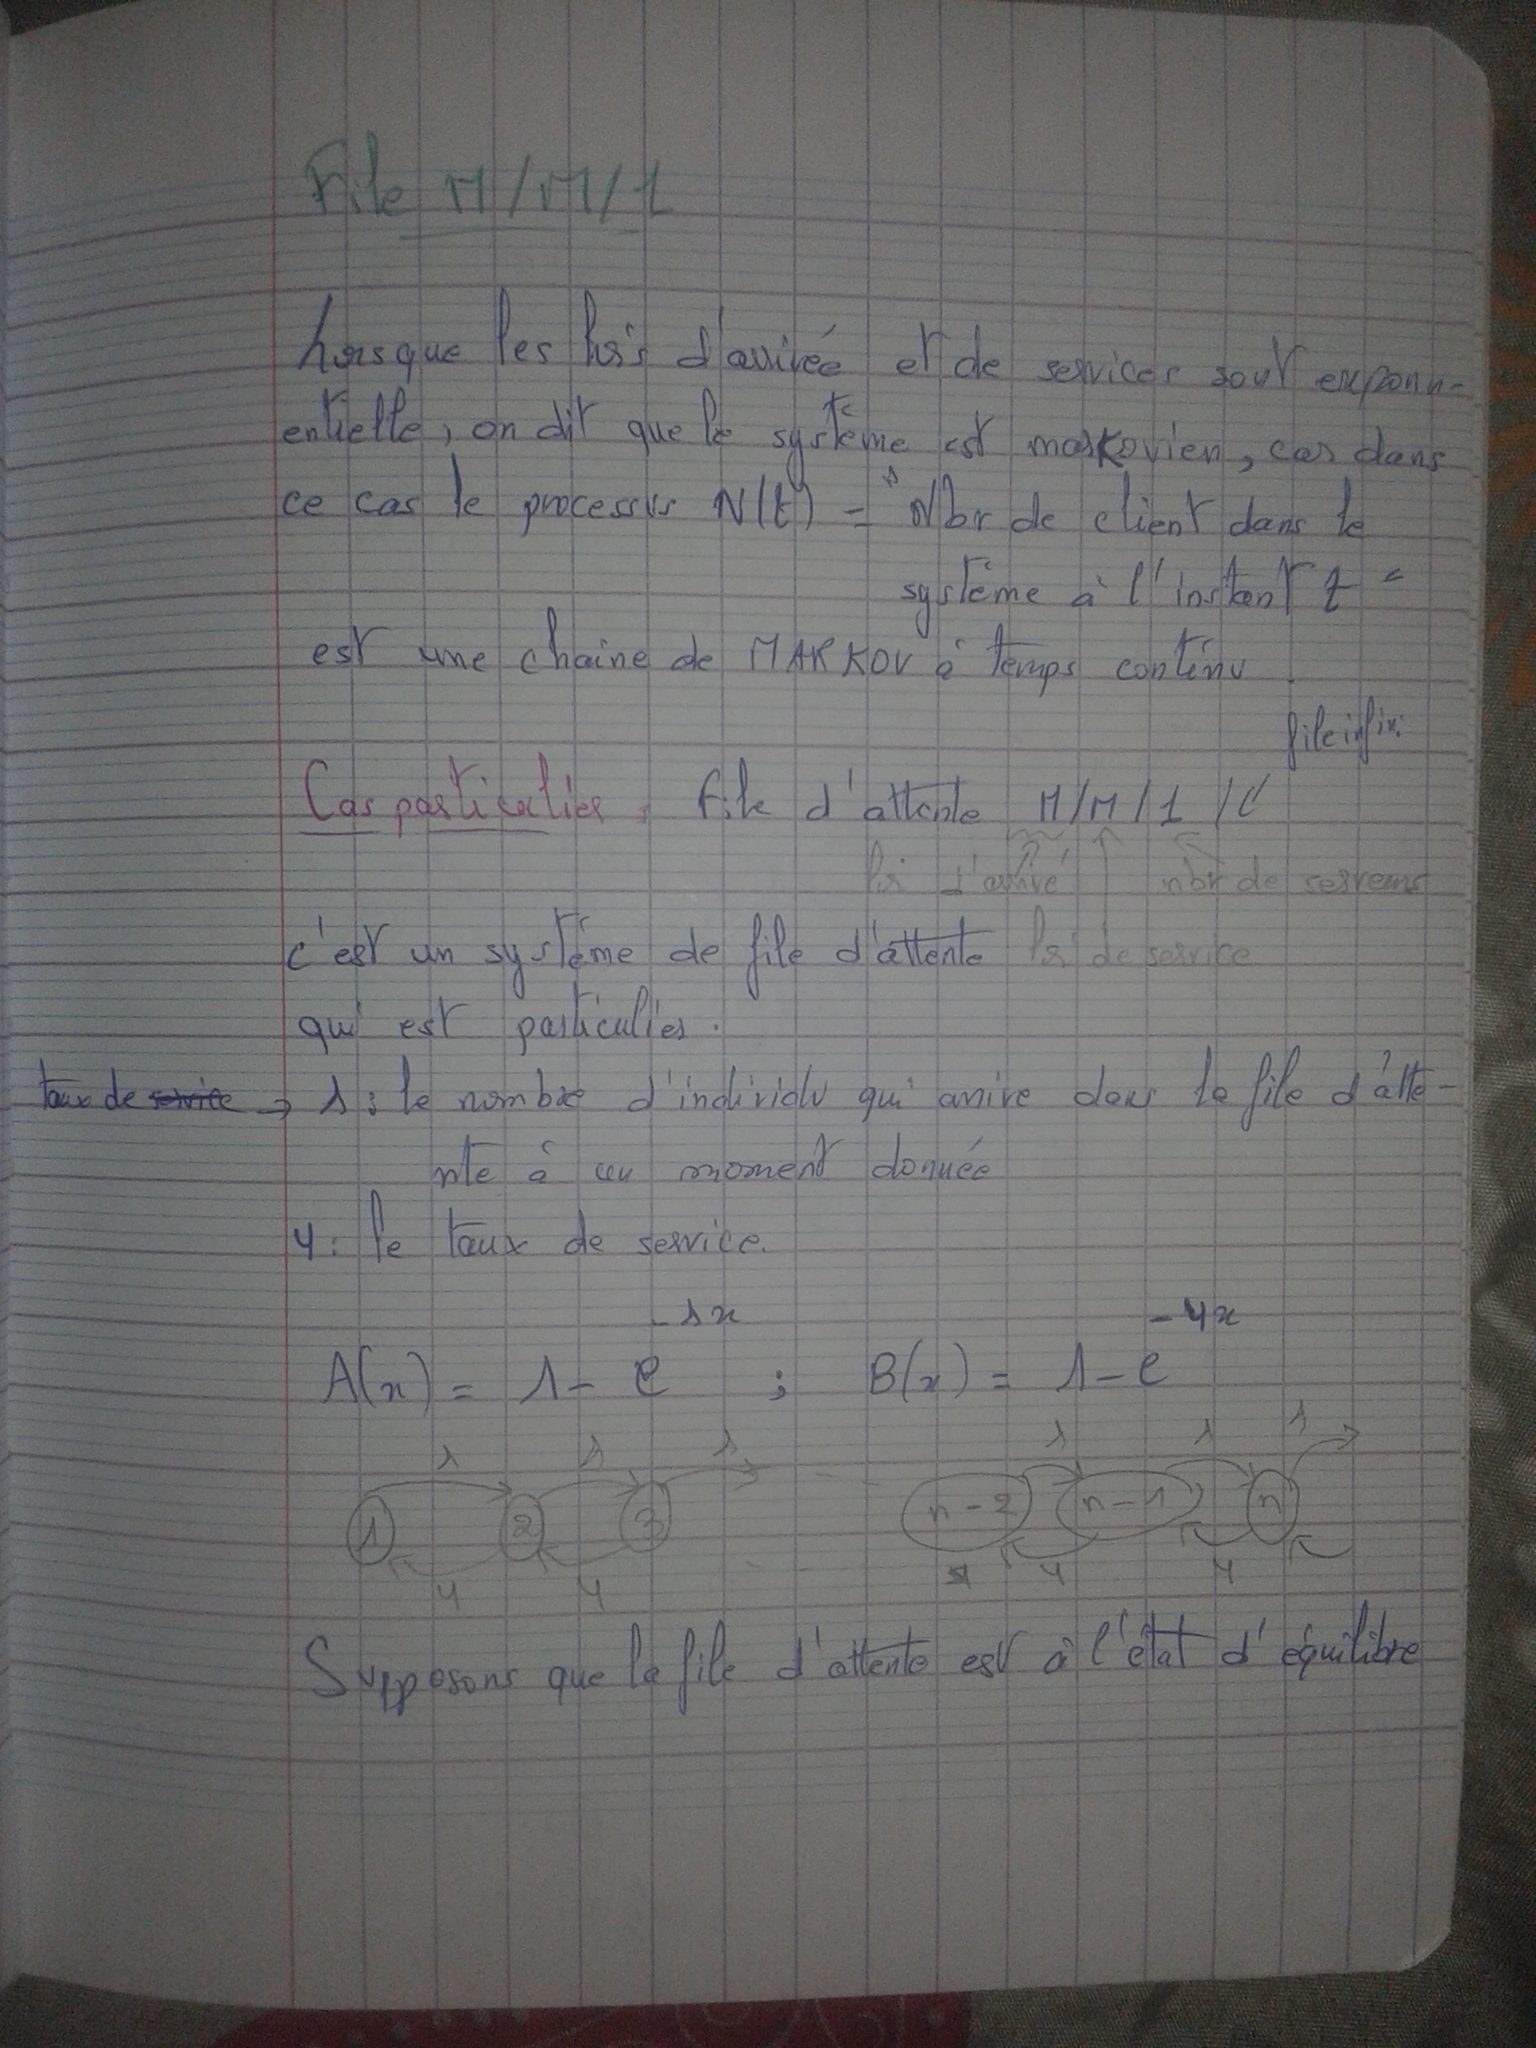 File M/M/1
Lorsque les lois d'arrivée et de services sont exponn-
entielle, on dit que le système est markovien, car dans
ce cas le processus N(t) = "Nbr de client dans le
système à l'instant t"
est une chaine de MARKOV à temps continu.
file infin:
Cas particulier: File d'attente M/M/1 /
loi d'arrivé nbr de serveurs
c'est un système de file d'attente loi de service
qui est particulier.
taux de service → λ: le nombre d'individu qui arrive dans la file d'atte-
nte à un moment donnée
μ: le taux de service.
A(x) = 1 - e^{-λx} ; B(x) = 1 - e^{-μx}
λ λ λ λ λ λ
1 2 3 n-2 n-1 n
μ μ μ μ
Supposons que la file d'attente est à l'état d'équilibre